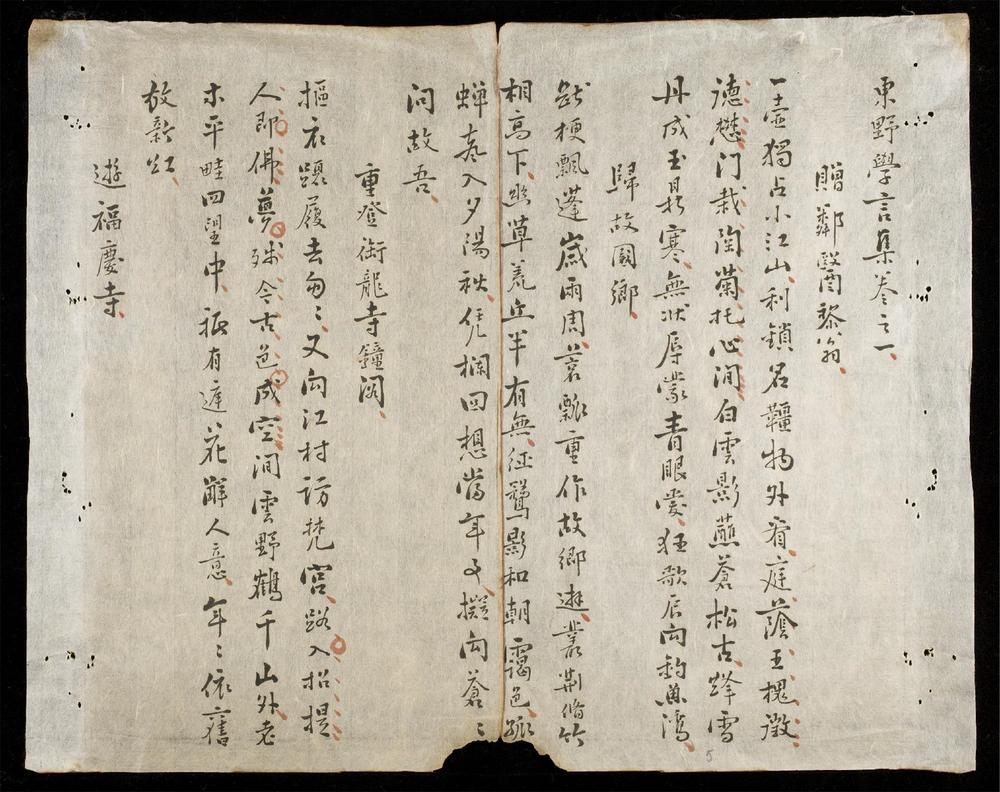 東野學言集卷之一
贈鄰醫黎翁
一壺獨占小江山利鎖名韁物外看庭蔭王槐徵
德懋门栽陶菊托心間白雲影蘸蒼松古絳雪
丹成玉鼎寒無狀辱蒙青眼愛狂歌辰向釣魚灣
歸故園鄉
跡梗飄蓬歲兩周蓑瓢重作故鄉遊叢荆脩竹
相高下幽草荒丘半有無征鷺影和朝靄色孤
蝉聲入夕陽秋凭欄回想當年事擬向蒼〻
问故吾
重登衔龍寺鐘閣
摳衣躡履去匆〻又向江村訪梵宮路入招提
人即佛夢殘今古色成空澗雲野鶴千山外老
木平畦四望中 祗有遲花解人意年〻依舊
放新紅
遊福慶寺